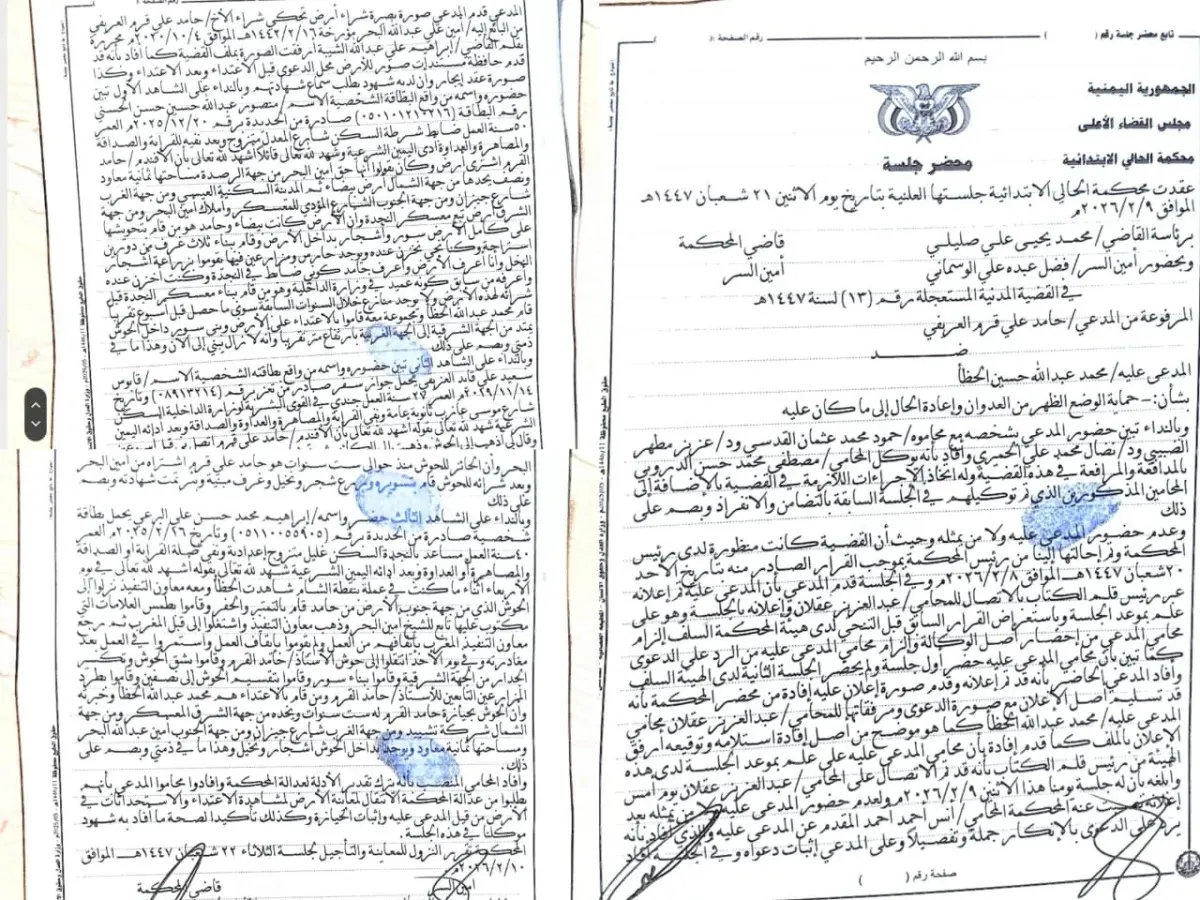 تابع محضر جلسة رقم ( )
رقم الصفحة :(
بسم الله الرحمن الرحيم
الجمهورية اليمنية
مجلس القضاء الأعلى
محكمة الحالي الابتدائية
محضر جلسة
عقدت محكمة الحالي الابتدائية جلستها العلنية بتاريخ يوم الاثنين ٢١ شعبان ١٤٤٧هـ
الموافق ٢٠٢٦/٢/٩م
برئاسة القاضي/ محمد يحيى علي صليلي قاضي المحكمة
وبحضور أمين السر/ فضل عبده علي الوسماني أمين السر
في القضية المدنية المستعجلة رقم (١٣) لسنة ١٤٤٧هـ
المرفوعة من المدعي/ حامد علي قرم العريفي
ضــــد
المدعى عليه/ محمد عبدالله حسين الحظأ
بشأن:- حماية الوضع الظهر من العدوان وإعادة الحال إلى ما كان عليه
وبالنداء تبين حضور المدعي بشخصه مع محاموه/ حمود محمد عثمان القدسي ود/ عزيز مطهر
الضبيبي ود/ نضال محمد علي الحميري وأفاد بأنه يوكل المحامي/ مصطفى محمد حسن الدروبي
بالمدافعة والمرافعة في هذه القضية وله اتخاذ الإجراءات اللازمة في القضية بالإضافة إلى
المحامين المذكورين الذي تم توكيلهم في الجلسة السابقة بالتضامن والانفراد وبصم على
ذلك
وعدم حضور المدعي عليه ولا من يمثله وحيث أن القضية كانت منظورة لدى رئيس
المحكمة وتم إحالتها إلينا من رئيس المحكمة بموجب القرار الصادر منه بتاريخ الأحد
٢٠ شعبان ١٤٤٧هـ الموافق ٢٠٢٦/٢/٨م وفي الجلسة قدم المدعي بأن المدعى عليه تم إعلانه
عبر رئيس قلم الكتاب بالاتصال للمحامي/ عبدالعزيز عقلان وإعلانه بالجلسة وهو على
علم بموعد الجلسة وباستعراض القرار السابق قبل التنحي لدى هيئة المحكمة السلف إلزام
محامي المدعي من إحضار أصل الوكالة وإلزام محامي المدعى عليه من الرد على الدعوى
كما تبين بأن محامي المدعى عليه حضر أول جلسة ولم يحضر الجلسة الثانية لدى الهيئة السلف
وأفاد المدعي الحاضر بأنه قد تم إعلانه وقدم صورة إعلان عليه إفادة من محضر المحكمة بأنه
قد تسليم أصل الإعلان مع صورة الدعوى ومرفقاتها للمحامي/ عبدالعزيز عقلان محامي
المدعى عليه/ محمد عبدالله الحظأ كما هو موضح من أصل إفادة استلامه وتوقيعه أرفق
الإعلان بالملف كما قدم إفادة بأن محامي المدعى عليه على علم بموعد الجلسة لدى هذه
الهيئة من رئيس قلم الكتاب بأنه قد تم الاتصال على المحامي/ عبدالعزيز عقلان يوم أمس
وأبلغه بأن له جلسة يومنا هذا الاثنين ٢٠٢٦/٢/٩م ولعدم حضور المدعى عليه ولا من يمثله بعد
إعلانه نصبت عنه المحكمة المحامي/ أنس أحمد أحمد المقدم عن المدعى عليه والذي أفاد بأنه
يرد على الدعوى بالإنكار جملة وتفصيلا وعلى المدعي إثبات دعواه وفي الجلسة أفاد
صفحة رقم ( )
المدعي قدم المدعي صورة بصيرة شراء أرض تحكي شراء الأخ/ حامد علي قرم العريفي
من البائع إليه/ أمين علي عبدالله البحر بمؤرخة ١٤٤٢/٢/١٦هـ الموافق ٢٠٢٠/١٠/٤م محررة
بقلم القاضي/ إبراهيم علي عبدالله الشيبة أرفقت الصورة بملف القضية كما أفاد بأنه قد
قدم حافظة مستندات صور للأرض محل الدعوى قبل الاعتداء وبعد الاعتداء وكذا
صورة عقد إيجار وأن لديه شهود يطلب سماع شهادتهم وبالنداء على الشاهد الأول تبين
حضوره واسمه من واقع البطاقة الشخصية الاسم/ منصور عبدالله حسين حسن الحسني
رقم البطاقة (٠٥٠١٠١٢١٢٢١٦) صادرة من الحديدة برقم ٢٠٢٥/١٢/٢٠م العمر
٥٠ سنة العمل ضابط شرطة السكن شارع المعدل متزوج وبعد نفيه للقرابة والصداقة
والمصاهرة والعداوة أدى اليمين الشرعية وشهد لله تعالى قائلا أشهد لله تعالى بأن الأفندم/ حامد
القرم اشترى أرض وكان يقولوا أنها حق أمين البحر من جهة الرصدة مساحتها ثمانية معاود
ونصف يحدها من جهة الشمال أرض بيضاء ثم المدينة السكنية العبيسي ومن جهة الغرب
شارع جيزان ومن جهة الجنوب الشارع المؤدي للمعسكر وأملاك أمين البحر ومن جهة
الشرق أرض تبع معسكر النجدة وأن الأرض كانت بيضاء وحامد هو من قام بتحويشها
على كامل الأرض سور وأشجار بداخل الأرض وقام ببناء ثلاث غرف من دورين
استراحة وكنا نجي نخزن عنده ويوجد حارس ومزارعين فيها يقوموا بزراعة أشجار
النخل وأنا أعرف الأرض وأعرف حامد كوني ضابط في النجدة وكنت أخزن عنده
وأعرفه من سابق كونه عميد في وزارة الداخلية وهو من قام ببناء معسكر النجدة قبل
شرائه لهذه الأرض ولا يوجد منازع خلال السنوات السابقة سوى ما حصل قبل أسبوع تقريبا
قام محمد عبدالله الحظأ ومجموعة معه قاموا بالاعتداء على الأرض وبنى سور داخل الحوش
يمتد من الجهة الشرقية إلى الجهة الغربية بارتفاع متر تقريبا وأنه لازال يبني إلى الآن وهذا ما في
ذمتي وبصم على ذلك
وبالنداء على الشاهد الثاني تبين حضوره واسمه من واقع بطاقته الشخصية الاسم/ قابوس
سعيد علي قايد العزيقي يحمل جواز سفر صادر من تعز برقم (٠٨٩١٣٢١٤) وتاريخ
٢٠٢٩/١١/١٤م العمر ٢٧ سنة العمل جندي في القوى البشرية لوزارة الداخلية السكن
شارع موسى عازب ثانوية عامة ونفي القرابة والمصاهرة والعداوة والصداقة وبعد أدائه اليمين
الشرعية شهد لله تعالى بقوله أشهد لله تعالى بأن الأفندم/ حامد علي قرم
البحر وأن الحائز للحوش منذ حوالي ست سنوات هو حامد علي قرم اشتراه من أمين البحر
وبعد شرائه للحوش قام بتسويره وزرع شجر ونخيل وغرف مبنية وتمت شهادته وبصم
على ذلك
وبالنداء على الشاهد الثالث حضر واسمه/ إبراهيم محمد حسن علي البرعي يحمل بطاقة
شخصية صادرة من الحديدة برقم (٠٥١١٠٠٥٥٩٠٥) وتاريخ ٢٠٢٥/٢/٢٦م العمر
٤٠ سنة العمل مساعد بالنجدة السكن غليل متزوج إعدادية ونفى صلة القرابة أو الصداقة
والمصاهرة أو العداوة وبعد أدائه اليمين الشرعية شهد لله تعالى بقوله أشهد لله تعالى في يوم
الأربعاء أثناء ما كنت في عملة بنقطة الشام شاهدت الحظأ ومعه معاون التنفيذ نزلوا إلى
الحوش الذي من جهة الجنوب الأرض من حامد قام بالتمتر والحفر وقاموا بطمس العلامات التي
مكتوب عليها تابع للشيخ أمين البحر وذهب معاون التنفيذ واشتغلوا إلى قبل المغرب ثم رجع
معاون التنفيذ المغرب بإيقافهم من العمل ولم يقوموا بإيقاف العمل واستمروا في العمل بعد
مغادرته وفي يوم الأحد انتقلوا إلى حوش الأستاذ/ حامد القرم وقاموا بشق الحوش وتكسر
الجدار من الجهة الشرقية وقاموا ببناء سور وقاموا بتقسيم الحوش إلى نصفين وقاموا بطرد
المزارعين التابعين للأستاذ/ حامد القرم ومن قام بالاعتداء هم محمد عبدالله الحظأ وخبرته
وأن الحوش بحيازة حامد القرم له ست سنوات ويحده من جهة الشرق المعسكر ومن جهة
الشمال شركة تشييد ومن جهة الغرب شارع جيزان ومن جهة الجنوب أمين عبدالله البحر
ومساحتها ثمانية معاود ويوجد بداخل الحوش أشجار ونخيل وهذا ما في ذمتي وبصم على
ذلك.
وأفاد المحامي المنصب بأنه يترك تقدير الأدلة لعدالة المحكمة وأفادوا محاموا المدعي بأنهم
يطلبوا من عدالة المحكمة الانتقال لمعاينة الأرض لمشاهدة الاعتداء والاستحداثات في
الأرض من قبل المدعى عليه وإثبات الحيازة وكذلك تأكيدا لصحة ما أفاد به شهود
موكلنا في هذه الجلسة.
المحكمة تقرر النزول للمعاينة والتأجيل لجلسة الثلاثاء ٢٢ شعبان ١٤٤٧هـ الموافق
٢٠٢٦/٢/١٠م
أمين السر قاضي المحكمة